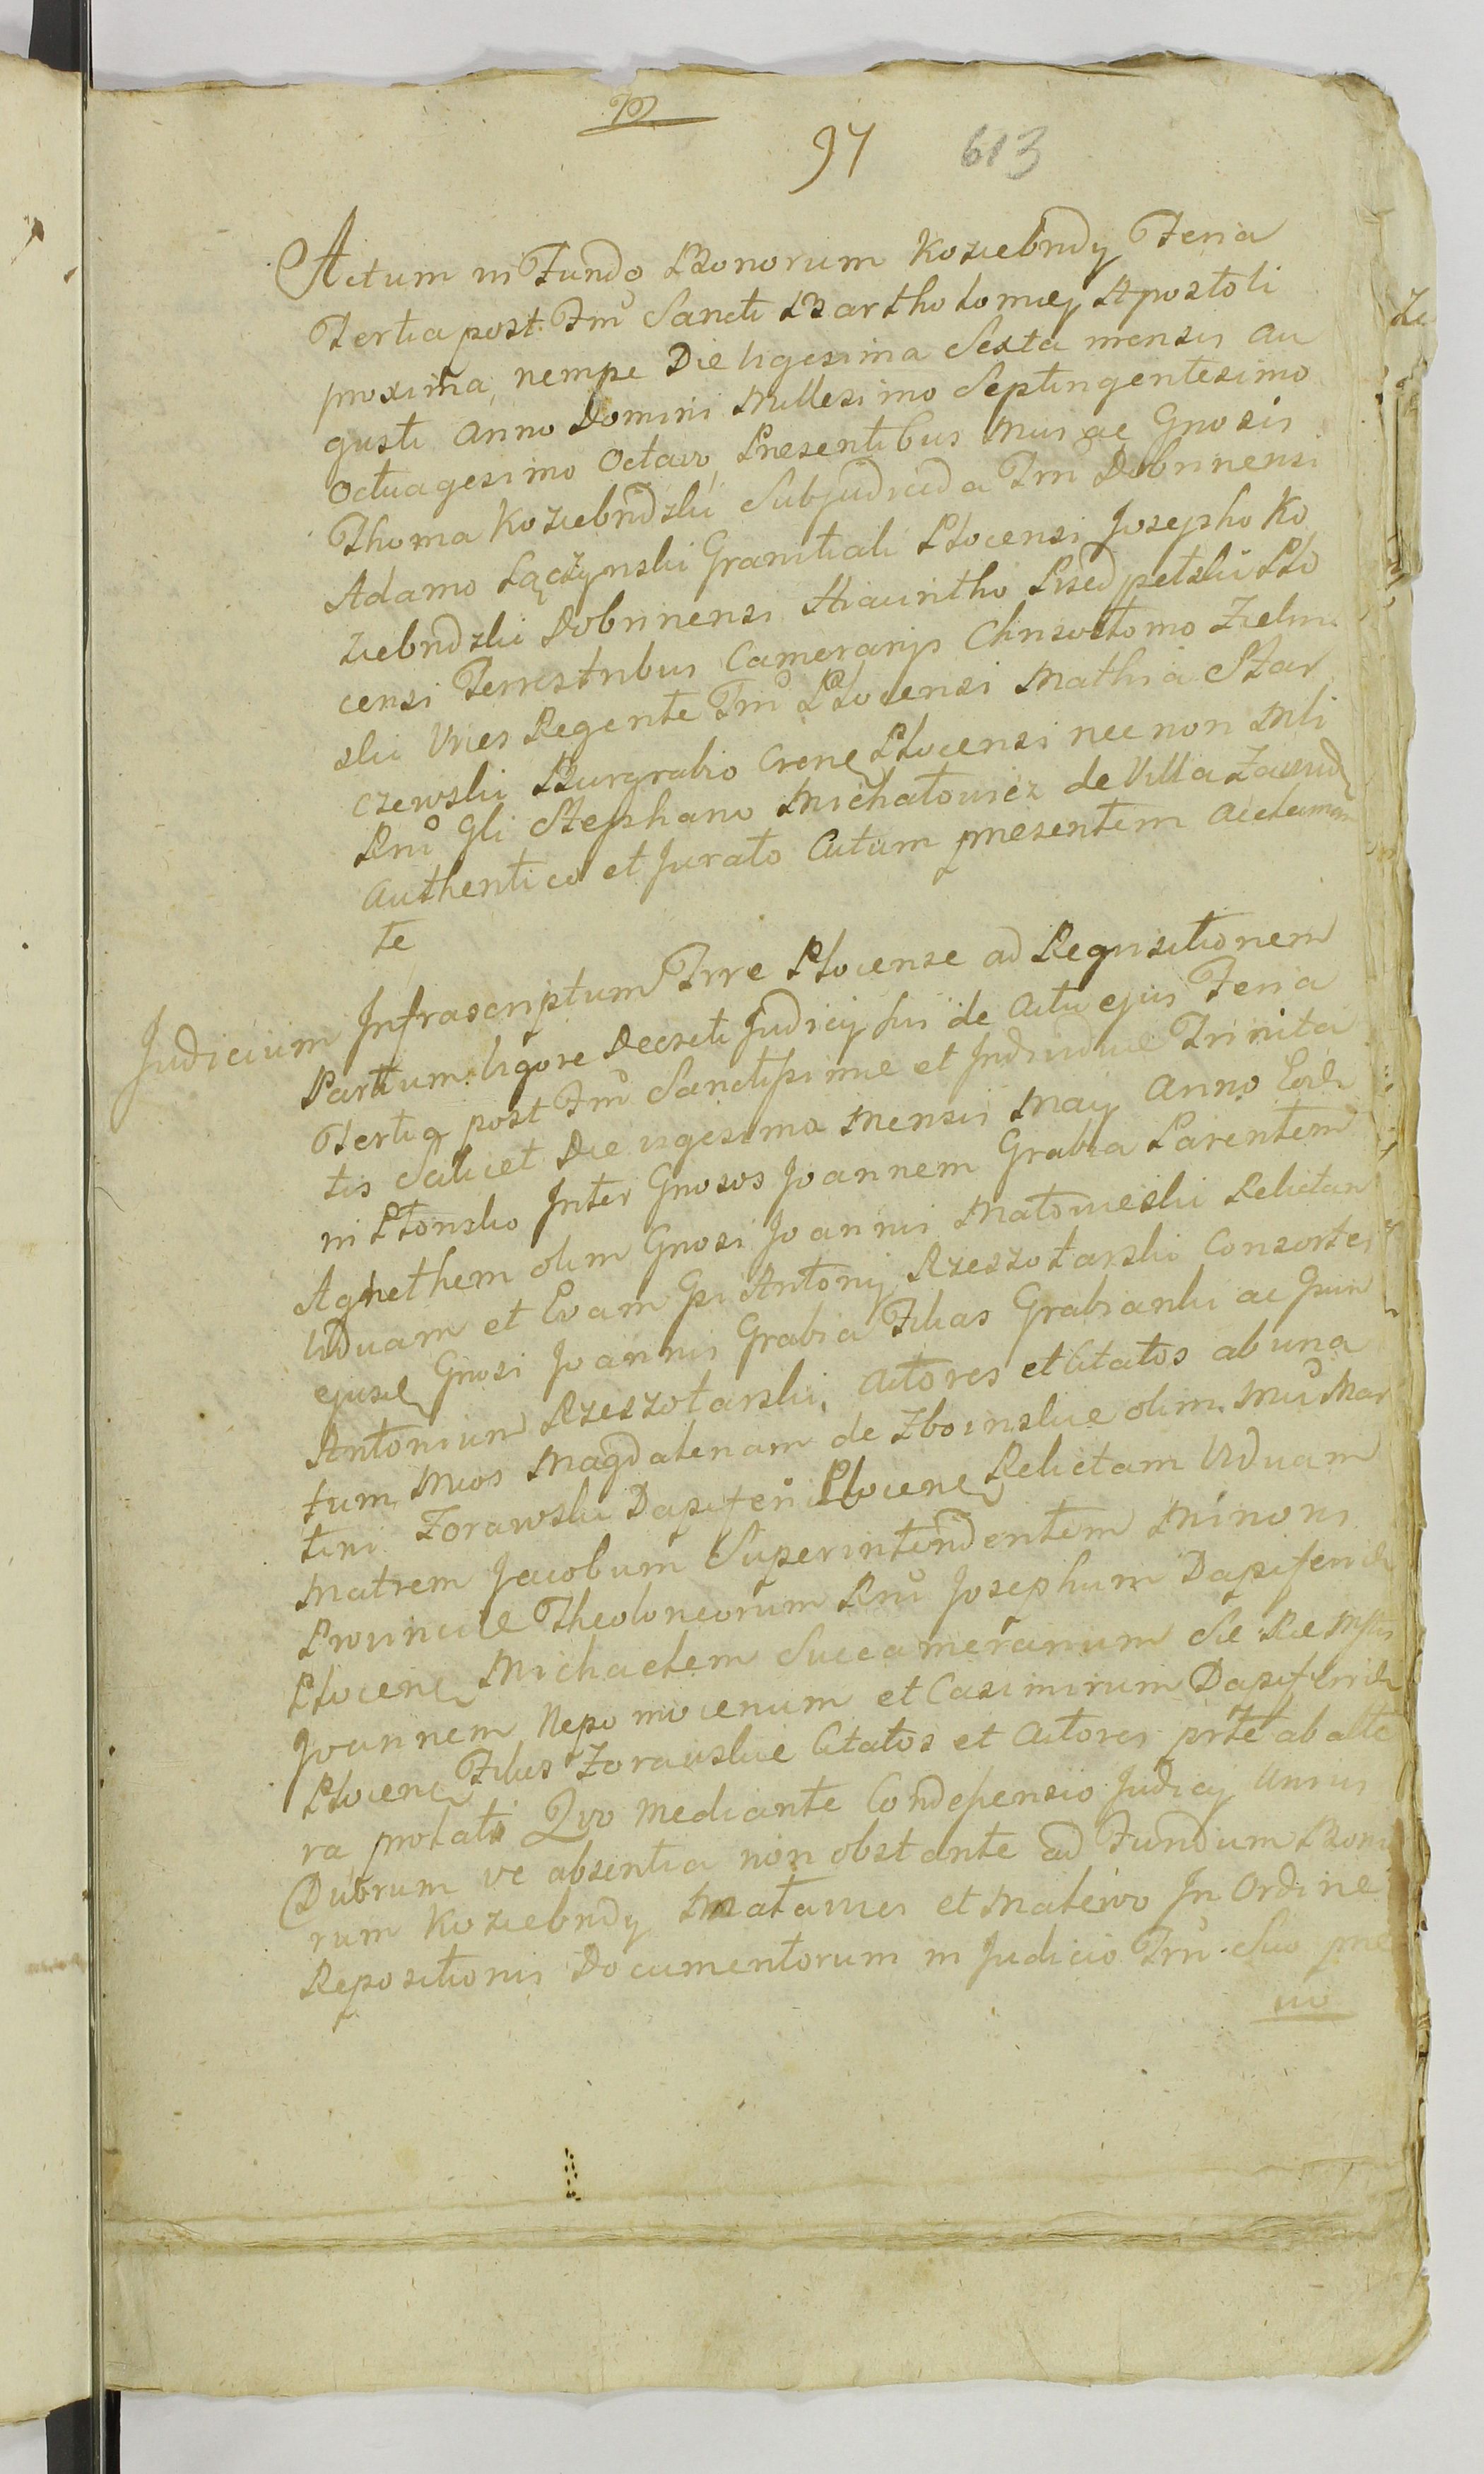 97 613
Actum in Fundo Bonorum Koziebrody Feria
Tertia post Fm̃ Sancti Bartholomæy Apostoli
proxima, nempe Die vigesima Sexta mensis Au
gusti Anno Domini Millesimo Septingentesimo
Octuagesimo Octavo, Præsentibus Mñs ac Gnosis
Thoma Koziebrodzki Subjudice Trrũ Dobrinensi
Adamo Łączynski Granitiali Plocensi Josepho Ko
ziebrodzki Dobrinensi Hiacintho Przedpełski Plo
censi Terrestribus Camerarijs Chrisostomo Zielin
ski Vices Regente Trrũ Plocensi Mathia Star
czewski Burgrabio Crcne Plocensi nec non Mli
Rnũ Gli Stephano Michałowicz de Villa
Authentico et Jurato Actum præsentem acclaman
te
Judicium Infrascriptum Trre Plocense ad Requisitionem
Partium vigore Decreti Judicij sui de Actu ejus Feria
Tertia post Fm̃ Sanctissimæ et Individuæ Trinita
tis Scilicet Die vigesima mensis May Anno Eod
in Płonsko Inter Gnosos Joannem Grabia Parentem
Agnethem olim Gnosi Joannis Małowieski Relictam
Viduam et Evam Gsi Antonij Rzeszotarski Consortem
ejusd Gnosi Joannis Grabia Filias Grabianki ac Gsum
Antonium Rzeszotarski, Actores et Citatos ab una
tum Mcos Magdalenam de Zboinskie olim Mci Mar
tini Zorawski Dapiferi Plocene Relictam Viduam
Matrem Jacobum Superintendentem Minoris
Provinciæ Theoloneorum Rni Josephum Dapiferid
Plocene Michaelem Succamerarium Sæ Ræ Mttis
Joannem Nepomucenum et Casimirum Dapiferid
Plocene Filios Zorawskie Citatos et Actores prte ab alte
ra, prolati Quo mediante Condescensio Judicij Unius
Duorum ve absentia non obstante ad Fundum Bono
rum Koziebrody Matawies et Malewo In Ordine
Repositionis Documentorum in Judicio Trrũ Suo præ
vio